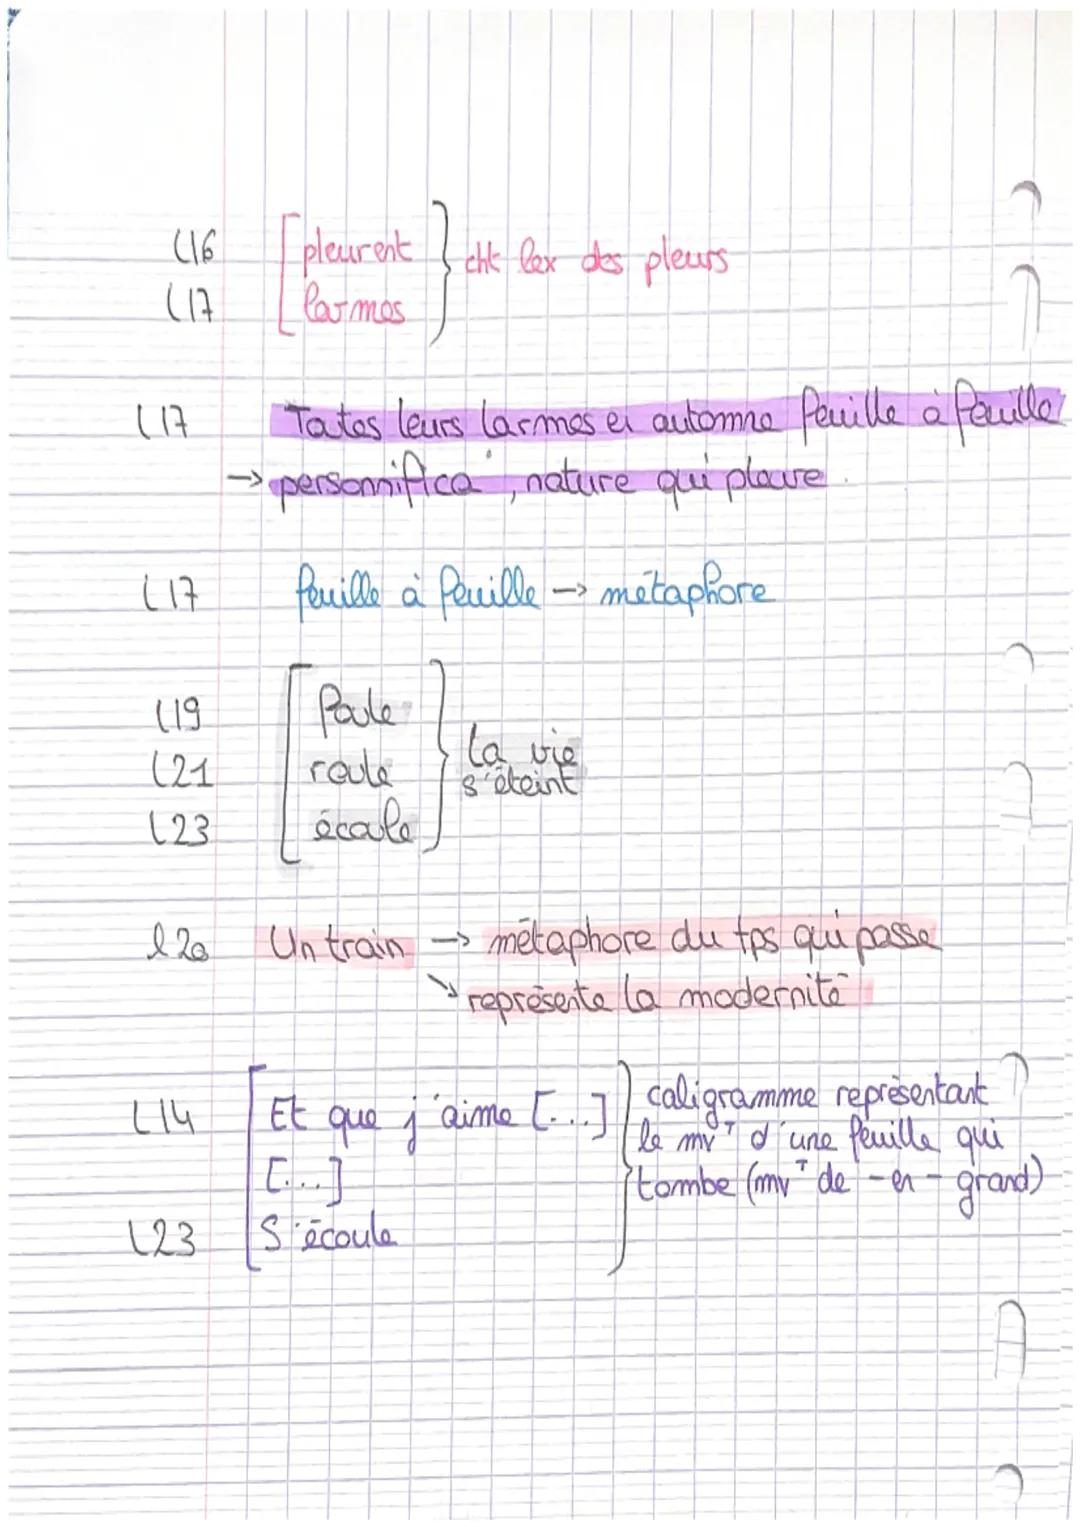 L16 [pleurent } cht lex des pleurs
L17 [larmes
L17 Toutes leurs larmes en automne feuille à feuille
→ personnifica°, nature qui pleure.
L17 feuille à feuille → métaphore
L19 [foule
L21 roule } la vie s'éteint
L23 écoule
l20 Un train → métaphore du tps qui passe
↘ représente la modernité
L14 [Et que j'aime [...] } caligramme représentant
le mvT d'une feuille qui
[...] tombe (mvT de - en - grand)
L23 S'écoule